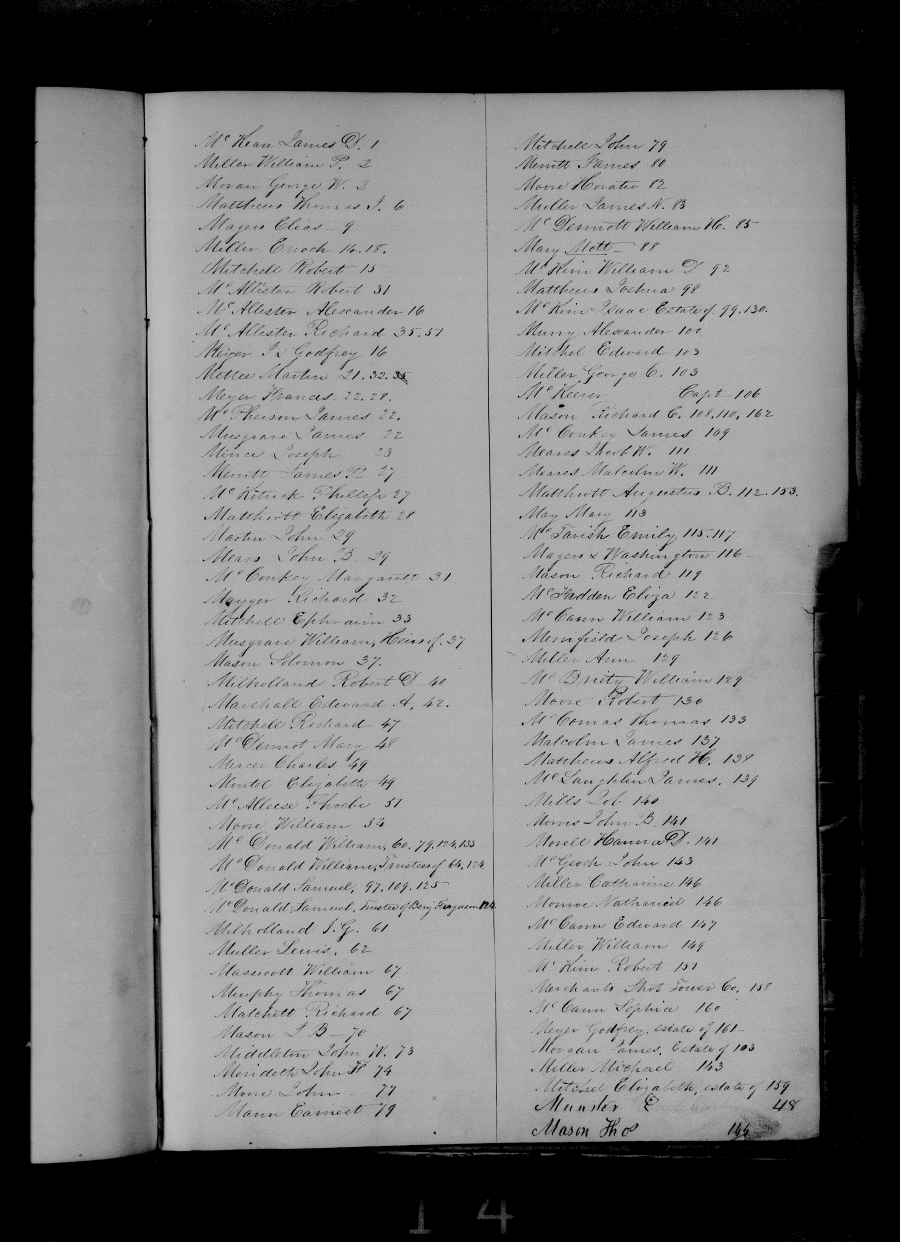 Mc Kean James D. 1
Miller William P. 2
Moran George W. 2
Matthews Thomas J. 6
Magers Elias - 9
Miller Enoch 14.18.
Mitchell Robert 15
Mc Allister Robert 31
Mc Allister Alexander 16
Mc Allister Richard 35.51
Meyer J & Godfrey 16
Mettee Martin 21.32.35
Meyer Francis 22.28.
Mc Pherson James 22.
Musgrave James 22
Mince Joseph 23
Merritt James 27
Mc Kitrick Phillip 27
Matthiott Elizabeth 28
Martin John 29
Mears John B. 29
Mc Conkey Margarett 31
Mayger Richard 32
Mitchell Ephraim 33
Musgrave William, Heirs of. 37
Mason Solomon 37.
Milholland Robert D 40
Marshall Edward A, 42.
Mitchell Richard 47
Mc Dermot Mary 48
Mercer Charles 49
Montel Elizabeth 49
Mc Alleese Phoebe 51
Moore William 54
Mc Donald William, 60.79,124,133
Mc Donald William, Trustees of 64,124
McDonald Samuel, 97.109.125
McDonald Samuel, Trustee of Benj Ferguson 124.
Milholland S.G. 61
Muller Lewis. 62
Masscott William 67
Murphy Thomas 67
Matchett Richard 67
Mason J B - 70
Middleton John W. 73
Merideth John F 74
Moore John 77
Mann Earnest 79
Mitchell John 79
Merritt James 80
Moore Horatio 82
Muller James N. 83
Mc Dermott William H. 85
Mary Mott - 88
Mc Kim William D 92
Matthews Joshua 98
Mc Kim Isaac Estate of 99.130.
Murry Alexander 100
Mitchel Edward 103
Miller George C. 103
Mc Keever Capt - 106
Mason Richard C. 108.110, 162
Mc Conkey James 109
Meares Jacob W. 111
Meares Malcolm W. 111
Matthiott Augustus B. 112.153.
May Mary 113
Mc Tavish Emily 115.117
Magers & Washington 116 -
Mason Richard 119
Mc Fadden Eliza 122
Mc Cann William 123
Merrifield Joseph 126
Miller Ann 129
Mc Bristy William 129
Moore Robert 130
Mc Comas Thomas 133
Malcolm James 137
Matthews Alfred H. 138
Mc Laughlin James. 139
Mills Job 140
Morris John B. 141
Morell Hanna D. 141
Mc Geoch John 143
Miller Catharine 146
Monroe Nathaniel 146
Mc Cann Edward 147
Miller William 149
Mc Kim Robert 151
Merchants Shot Tower Co. 158
Mc Cann Sophia 160
Meyer Godfrey, estate of 161
Morgan James, Estate of 103
Miller Michael 143
Mitchel Elizabeth, estate of 159
Munder C 48
Mason Thos 144
1 4